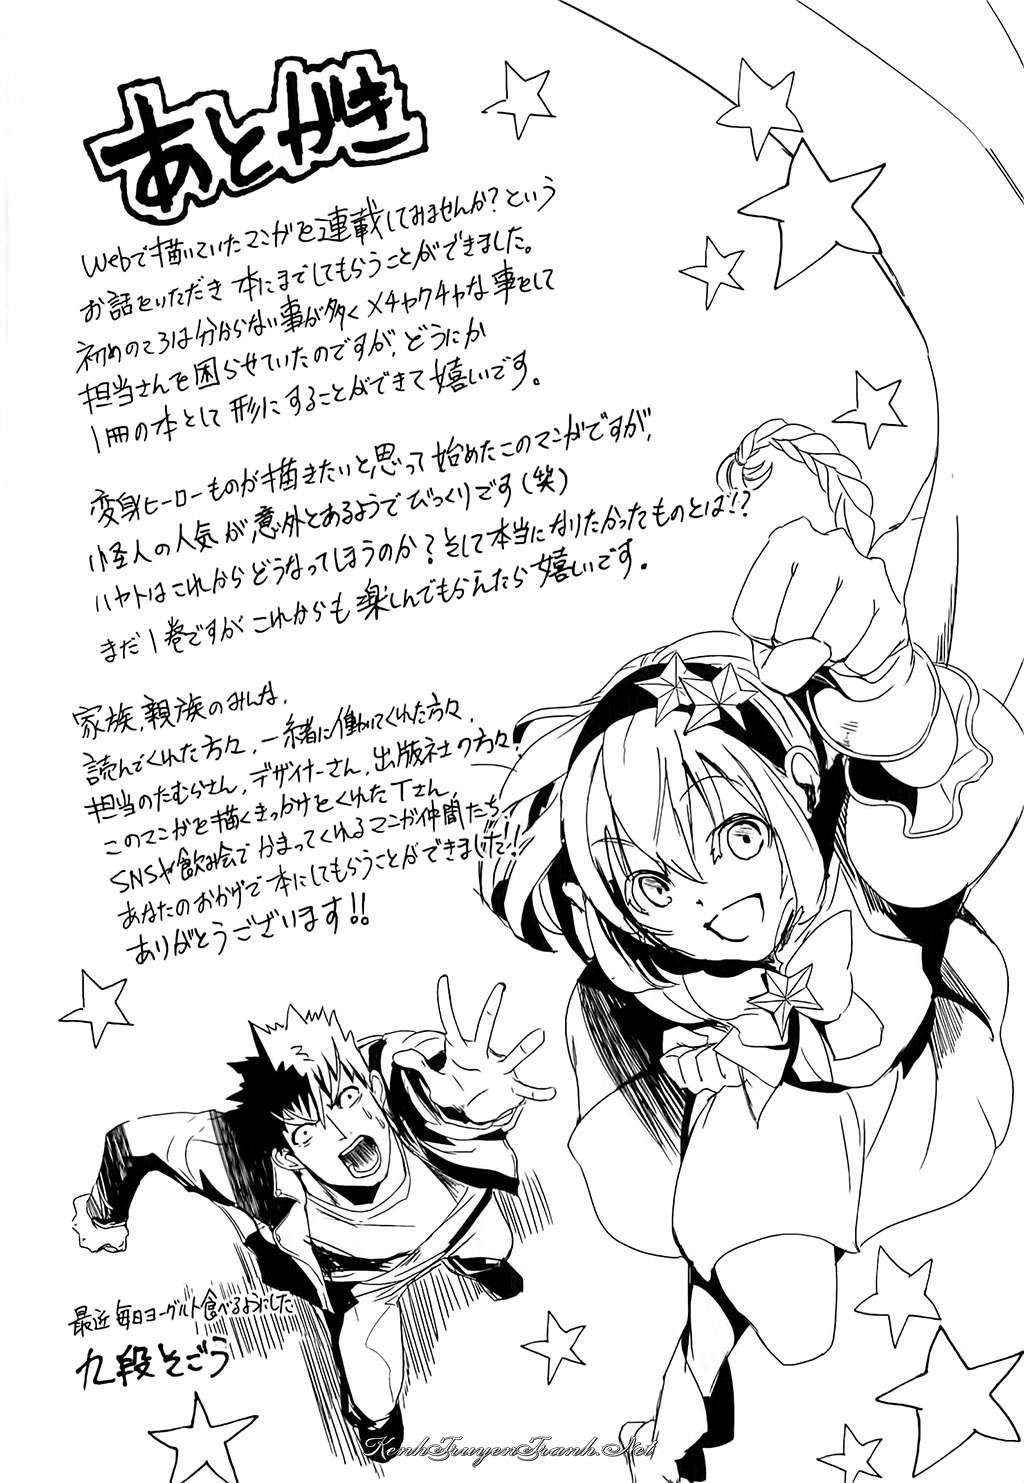 あとがき
Webで描いていたマンガを連載してみませんか?という
お話をいただき 本にまでしてもらうことができました。
初めのころは分からない事が多く メチャクチャな事をして
担当さんを困らせていたのですが、どうにか
1冊の本として 形にすることができて 嬉しいです。
変身ヒーローものが描きたいと思って 始めたこのマンガですが、
怪人の人気が意外とあるようでびっくりです(笑)
ハヤトはこれからどうなってしまうのか?そして本当になりたかったものとは!?
まだ1巻ですが これからも 楽しんでもらえたら 嬉しいです。
家族、親族のみんな、
読んでくれた方々、一緒に働いてくれた方々、
担当のたむらさん、デザイナーさん、出版社の方々、
このマンガを描くきっかけをくれたTさん、
SNSや飲み会でかまってくれるマンガ仲間たち、
あなたのおかげで本にしてもらうことができました!
ありがとうございます!!
最近 毎日ヨーグルト食べるようにした
九段そごう
KenhTruyenTranh.Net